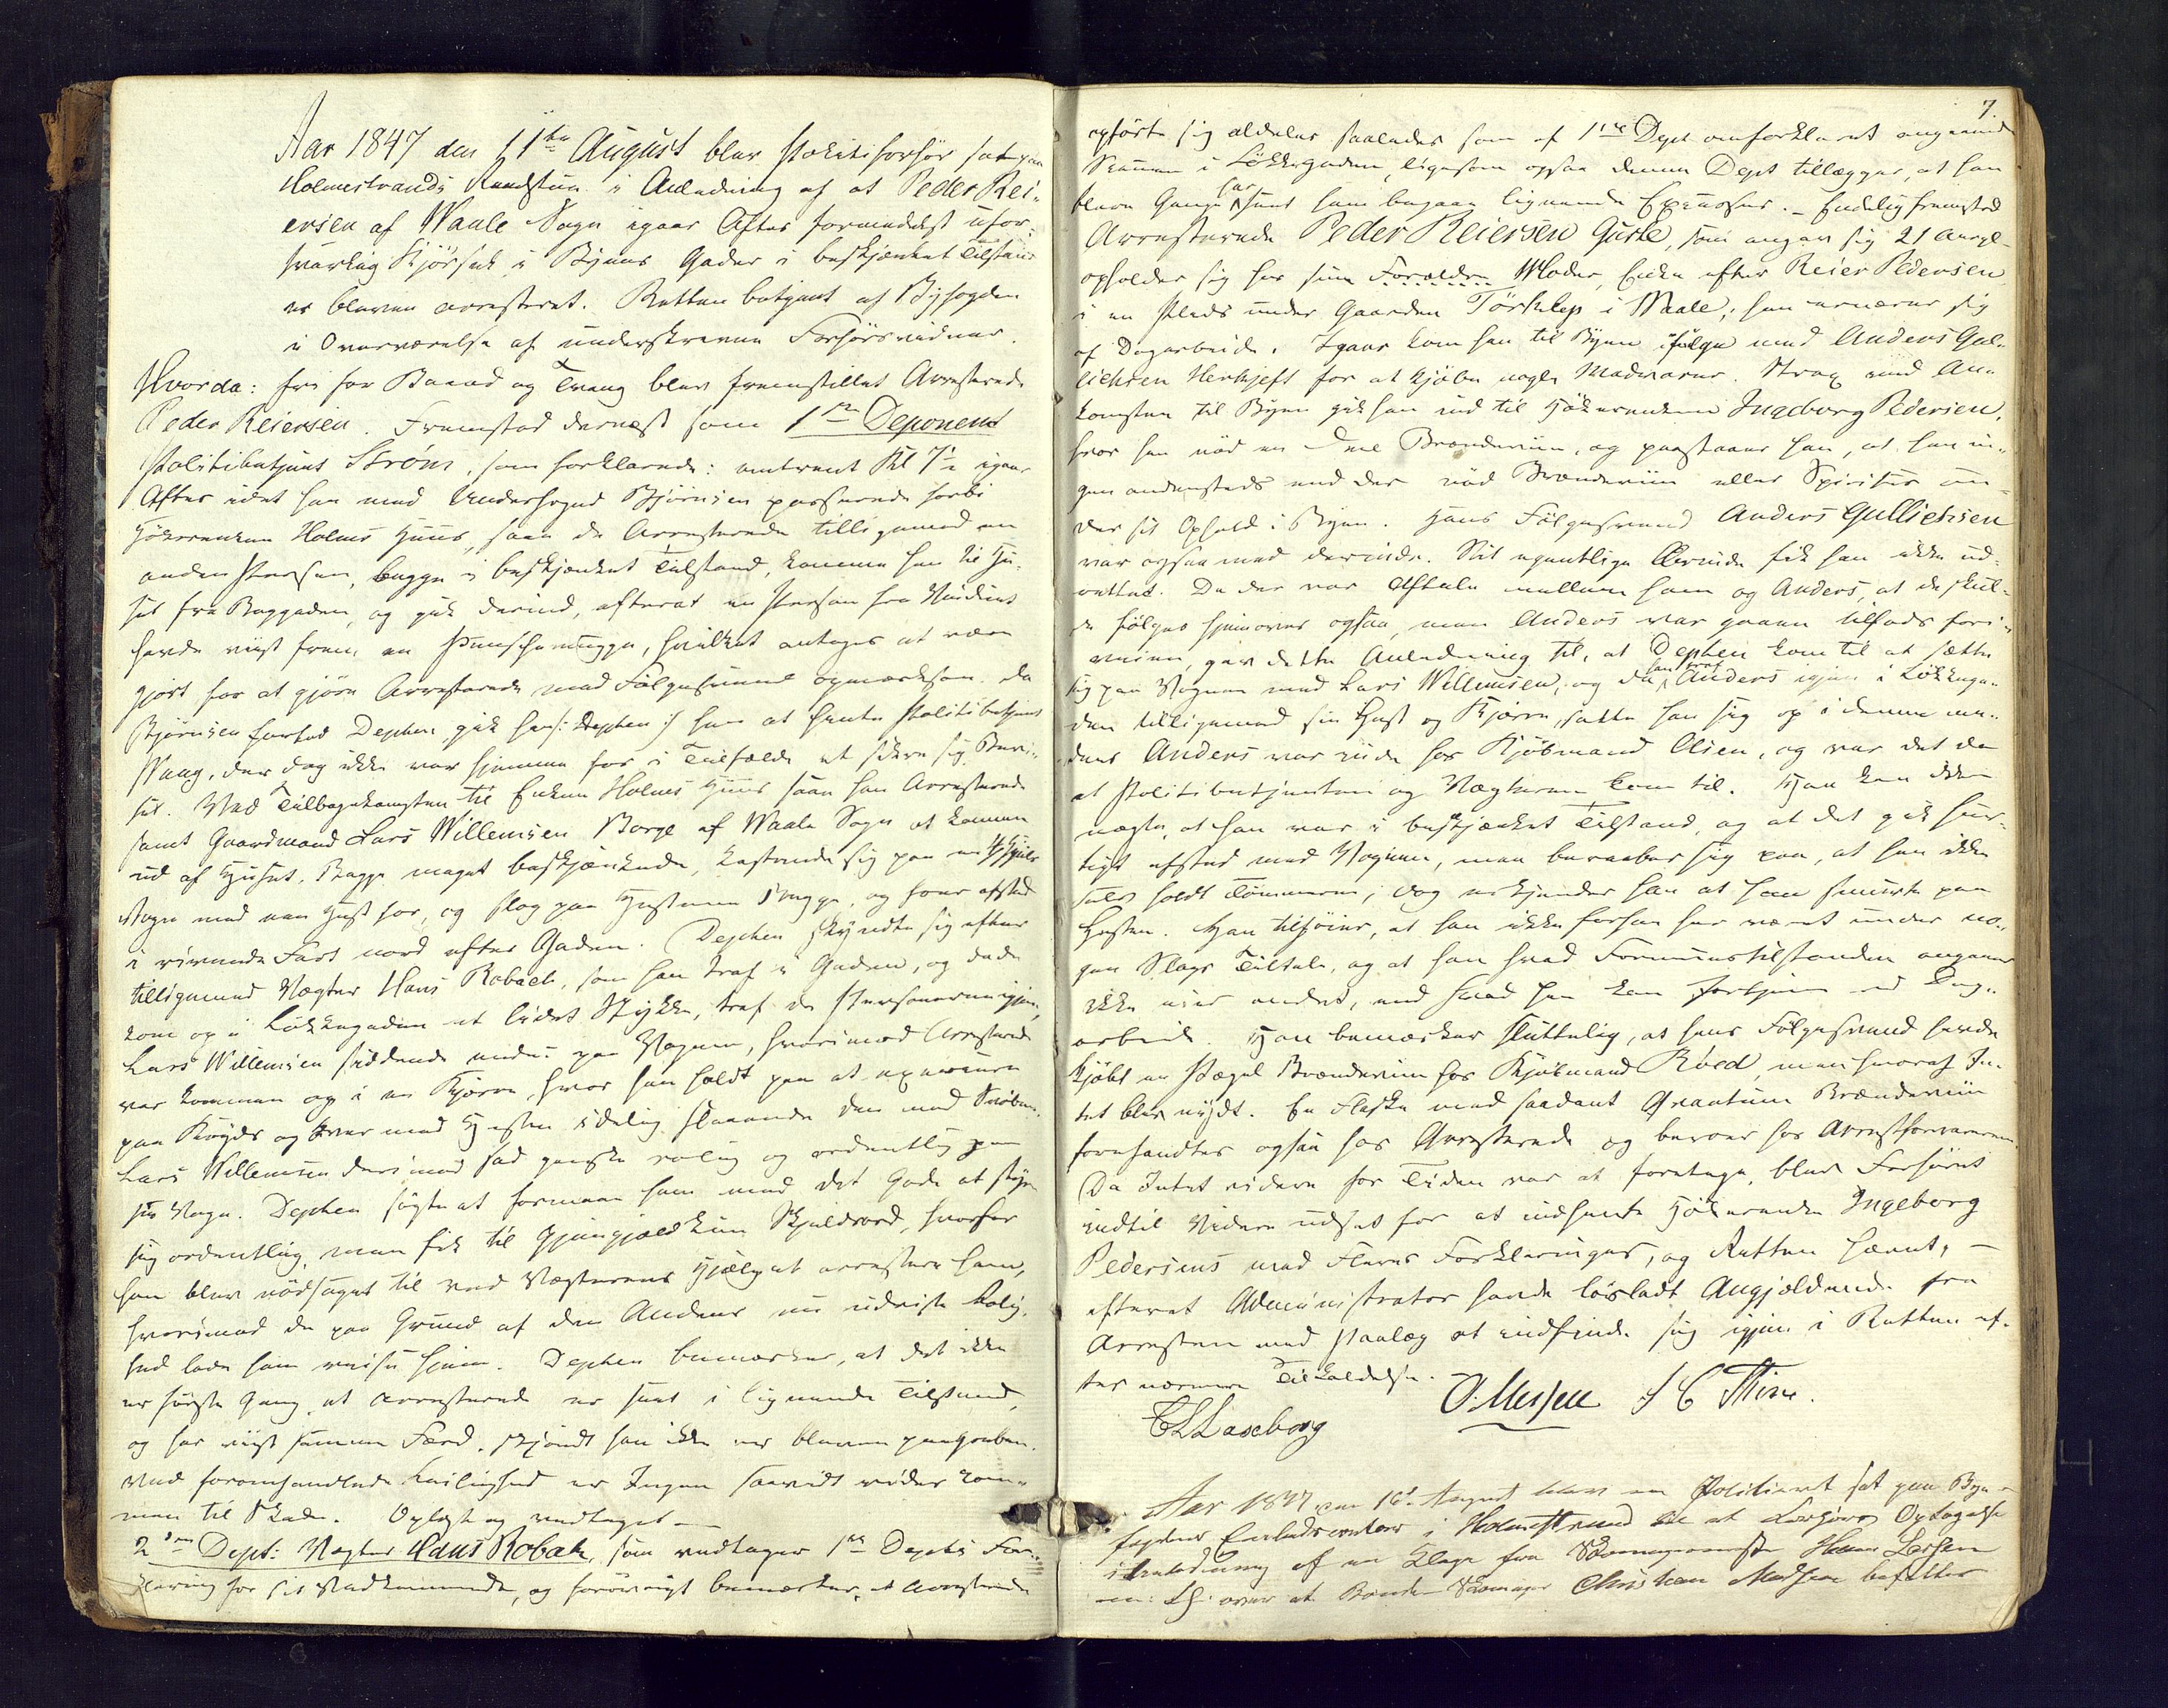 Aar 1847 den 11te August blev Politiforhör sat paa
Holmestrands Raadstue i Anledning af at Peder Rei-
ersen af Waale Sogn igaar Aftes formedelst ufor-
svarlig Kjörsel i Byens Gader i beskjænket Tilstand
er bleven arresteret. Retten betjent af Byfogden
i Overværelse af underskrevne Forhörsvidner.
Hvorda: fri for Baand og Tvang blev fremstillet Arresterede
Peder Reiersen. Fremstod dernæst som 1ste Deponent
Politibetjent Ström, som forklarede: omtrent Kl 7½ igaar
Aftes idet han med Underfoged Björnsen passerede forbi
Hökerenken Holms Huus, saae de Arresterede tilligemed en
anden Person, begge i beskjænket Tilstand, komme hen til Hu-
set fra Baggaden, og gik derind, efterat en Person fra Vinduet
havde viist frem en Punschemugge, hvilket antoges at være
gjort for at gjöre Arresterede med Fölgesvend opmærksom. Da
Björnsen forlod Dephen, gik han /: Dephen :/ hen at hente Politibetjent
Waag, der dog ikke var hjemme for i Tilfælde at sikre sig Bevi-
set. Ved Tilbagekomsten til Enken Holms Huus saae han Arresterede
samt Gaardmand Lars Willemsen Borge af Waale Sogn at komme
ud af Huset. Begge meget beskjænkede, kastende sig paa en 4 Hjuls
Vogn med een Hest for, og slog paa Hesten Begge, og foer afsted
i rivende Fart nord efter Gaden. Dephen skyndte sig efter
tilligemed Vægter Hans Roback, som han traf i Gaden, og da de
kom op i Lökkegaden et lidet Stykke, traf de Personerne igjen,
Lars Willemsen siddende endnu paa Vognen, hvorimod Arresterede
var kommen op i en Kjærre, hvor han holdt paa at
paa Kryds og tver med Hesten idelig slaaende den med Svöben.
Lars Willemsen derimod sad ganske rolig og ordentlig paa
sin Vogn. Dephen sögte at formaae ham med det Gode at skikke
sig ordentlig, men fik til Gjengjæld kun Skjeldsord, hvorfor
han blev nödsaget til ved Vægterens Hjælp at arrestere ham,
hvorimod de paa Grund af den Andens nu udviste Rolig-
hed lode ham reise hjem. Dephen bemærker, at det ikke
er förste Gang, at Arresterede er seet i lignende Tilstand,
og har viist samme Færd, skjöndt han ikke er bleven paagreben.
Ved foromhandlede Leilighed er Ingen saavidt vides kom-
men til Skade. Oplæst og vedtaget.
2den Dept: Vægter Hans Roback, som vedtager 1ste Depts For-
klaring for sit Vedkommende, og forövrigt bemærker, at Arresterede
7.
opförte sig aldeles saaledes som af 1ste Dept omforklaret angaaende
Scenen i Lökkegaden, ligesom ogsaa denne Dept tillægger, at han
flere Gange har seet ham begaae lignende Excesser. – Endelig fremstod
Arresterede Peder Reiersen Gurle, som angav sig 21 Aar gl.
opholder sig hos sine Forældre Moder, Enke efter Reier Pedersen
i en Plads under Gaarden Törklep i Waale; han ernærer sig
af Dagarbeide. Igaar kom han til Byen ifölge med Anders Gul-
lichsen Herkjeft for at kjöbe nogle Madvarer. Strax ved An-
komsten til Byen gik han ind til Hökerenken Ingeborg Pedersen,
hvor han nöd en Deel Brændeviin, og paastaaer han, at han in-
gen andensteds end der nöd Brændeviin eller Spiritus un-
der sit Ophold i Byen. Hans Fölgesvend Anders Gullichsen
var ogsaa med derinde. Sit egentlige Ærinde fik han ikke ud-
rettet. Da der var Aftale mellem ham og Anders, at de skul-
de fölges hjemover ogsaa, men Anders var gaaen tilfods fori-
veien, gav dette Anledning til, at Dephen kom til at sætte
sig paa Vognen med Lars Willemsen, og da han traf Anders igjen i Lökkega-
den tilligemed sin Hest og Kjærre, satte han sig op i denne me-
dens Anders var inde hos Kjöbmand Olsen, og var det da
at Politibetjenten og Vægteren kom til. Han kan ikke
nægte, at han var i beskjænket Tilstand, og at det gik hur-
tigt afsted med Vognen, men beraaber sig paa, at han ikke
selv holdt Tömmerne; dog erkjender han at han smurte paa
Hesten. Han tilföier, at han ikke forhen har været under no-
gen Slags Tiltale, og at han hvad Formuestilstanden angaaer
ikke eier andet, end hvad han kan fortjene ved Dag-
arbeide. Han bemærker sluttelig, at hans Fölgesvend havde
kjöbt en Pægel Brændeviin hos Kjöbmand Röed, men hvoraf In-
tet blev nydt. En Flaske med saadant Qvantum Brændeviin
forefandtes ogsaa hos Arresterede og beroer hos Arrestforvareren.
Da Intet videre for Tiden var at foretage, blev Forhöret
indtil Videre udsat for at indhente Hökerenke Ingeborg
Pedersens med Fleres Forklaringer, og Retten hævet, –
efterat Administrator havde lösladt Angjældende fra
Arresten med Paalæg at indfinde sig igjen i Retten ef-
ter nærmere Tilkaldelse.
O. Messell
Aar 1847 den 16de August blev en Politiret sat paa By-
fogdens Embedscontoir i Holmestrand til at Optagelse
i Anledning af en Klage fra Hans Larsen
over at Christian Madsen